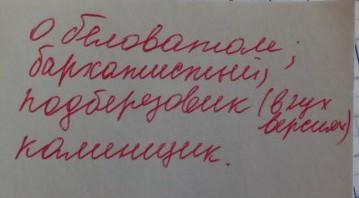 О беловатом;
бархатистый,
подберезовик (в двух
версиях)
каменщик.